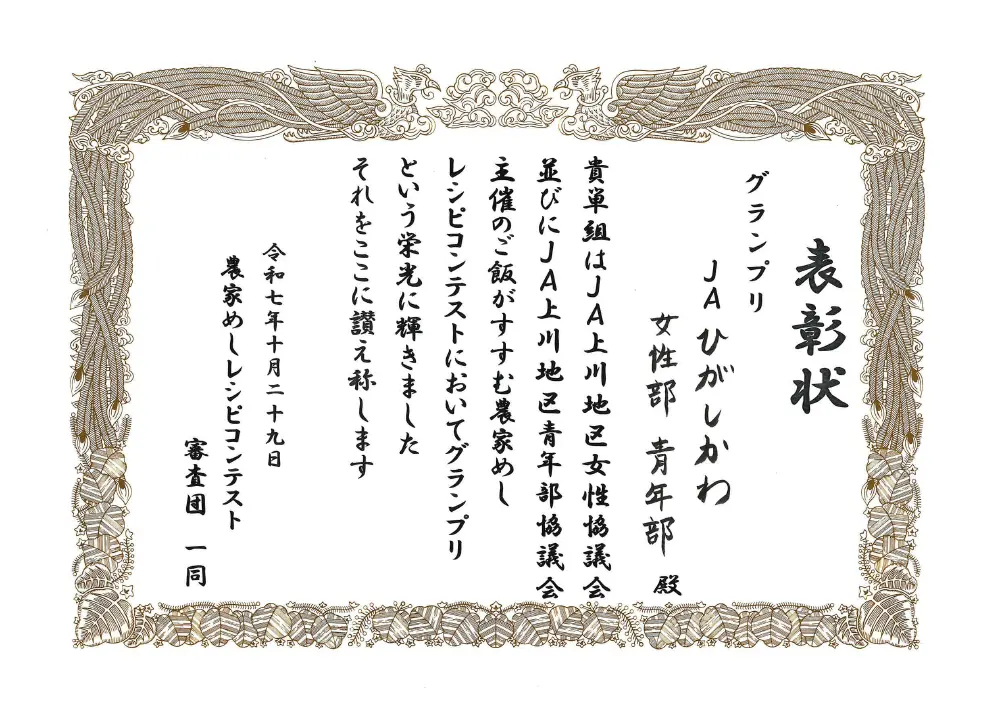 表彰状
グランプリ
JAひがしかわ
女性部 青年部 殿
貴単組はJA上川地区女性協議会
並びにJA上川地区青年部協議会
主催のご飯がすすむ農家めし
レシピコンテストにおいてグランプリ
という栄光に輝きました
それをここに讃え称します
令和七年十月二十九日
農家めしレシピコンテスト
審査団 一同